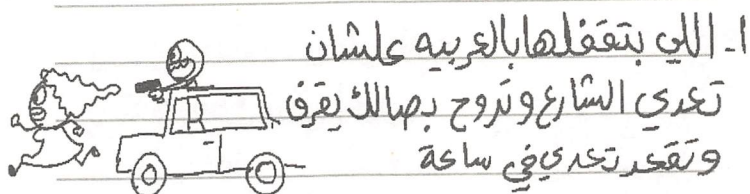 ١- اللي بتقفلها بالعربيه علشان
تعدي الشارع وتروح بصالك بقرف
وتقعد تعدي في ساعة